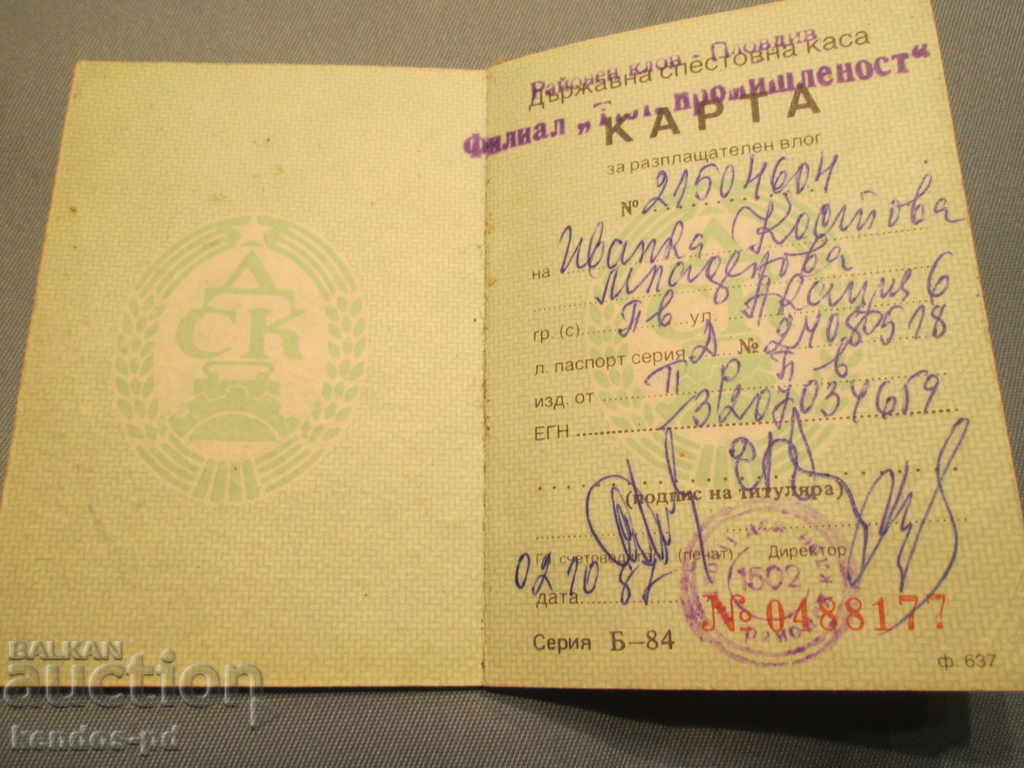 ДСК
Районен клон - Пловдив
Държавна спестовна каса
Филиал „ промишленост“
КАРТА
за разплащателен влог
№ 21504604
на Иванка Костова
Младенова
гр. (с) Пв ул. Акация 6
л. паспорт серия Д № 24080518
изд. от ПРПв
ЕГН 3207034659
(подпис на титуляра)
Гл. счетоводител (печат) Директор
1502
02 10 87
дата
№ 0488177
Серия Б-84
ф. 637
BALKAN
auction
kendos-pd